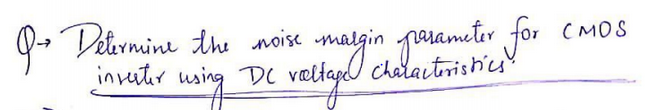 Q→ Determine the noise margin parameter for CMOS
inverter using DC voltage characteristics.